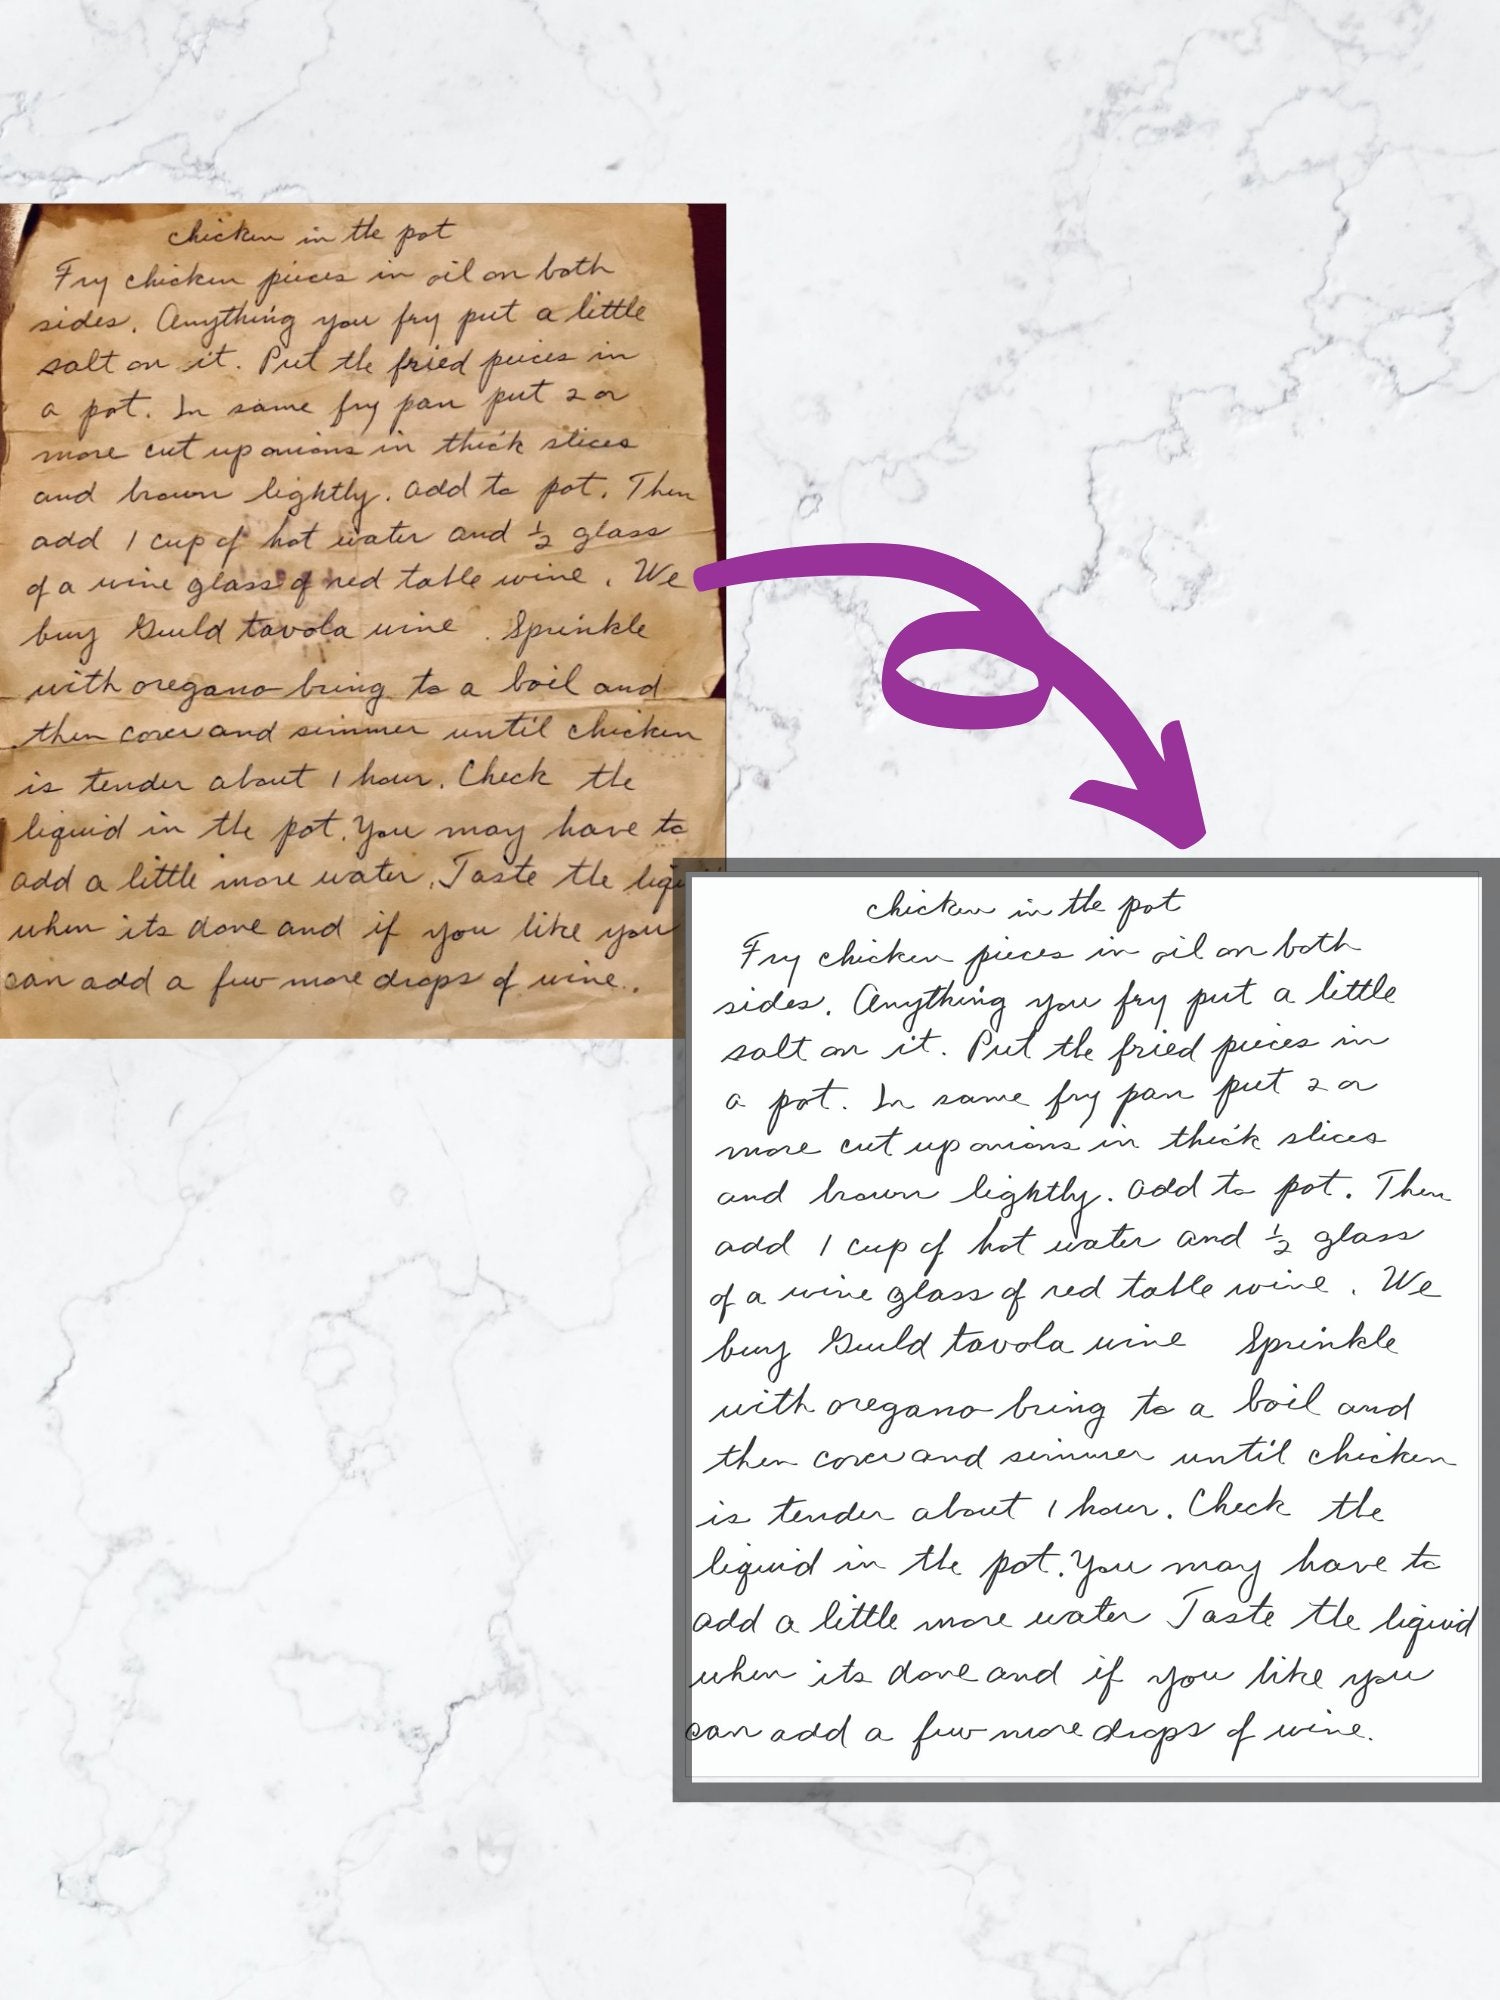 chicken in the pot
Fry chicken pieces in oil on both
sides. Anything you fry put a little
salt on it. Put the fried pieces in
a pot. In same fry pan put 2 or
more cut up onions in thick slices
and brown lightly. Add to pot. Then
add 1 cup of hot water and ½ glass
of a wine glass of red table wine. We
buy Guild tavola wine. Sprinkle
with oregano bring to a boil and
then cover and simmer until chicken
is tender about 1 hour. Check the
liquid in the pot. You may have to
add a little more water. Taste the liqu
when its done and if you like you
can add a few more drops of wine.
chicken in the pot
Fry chicken pieces in oil on both
sides. Anything you fry put a little
salt on it. Put the fried pieces in
a pot. In same fry pan put 2 or
more cut up onions in thick slices
and brown lightly. Add to pot. Then
add 1 cup of hot water and ½ glass
of a wine glass of red table wine. We
buy Guild tavola wine Sprinkle
with oregano bring to a boil and
then cover and simmer until chicken
is tender about 1 hour. Check the
liquid in the pot. You may have to
add a little more water Taste the liquid
when its done and if you like you
can add a few more drops of wine.